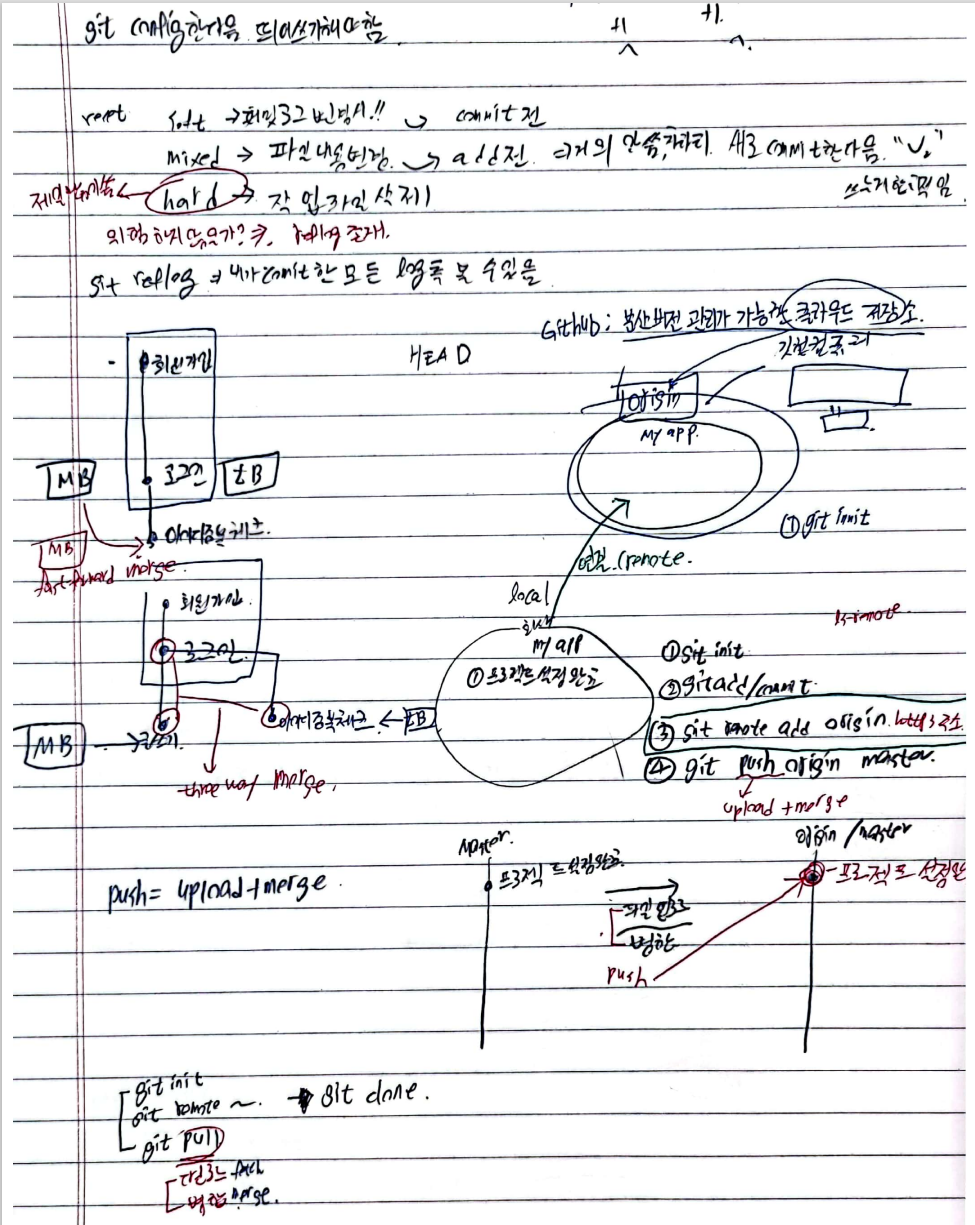 git config한다음 띄어쓰기해야함
+1
+1.
reset soft → 커밋로그 변경시!! commit 전
mixed → 파일내용변경. add전. ⇒거의 안씀, 차라리 새로 commit한다음. "V2"
쓰는게 한국임
제일 많이씀 ← hard → 작업파일 삭제
위험하지 않은가? ⇒ reflog 존재.
git reflog ⇒ 내가 commit한 모든 log를 볼 수 있음
Github : 분산버전 관리가 가능한 클라우드 저장소.
HEAD
회원가입
origin
my app.
MB
로그인
tB
아이디중복체크.
① git init
MB
fast-forward merge.
연결.(remote.
local
회원가입.
회사
my app
① 프로젝트설정완료
ls-remote
로그인.
① git init
② git add/commit.
아이디중복체크 ← tB
③ git remote add origin. 주소.
MB
④ git push origin master.
three way merge.
upload + merge
master.
origin / master
프로젝트 설정완료.
프로젝트 설정완
push = upload + merge.
파일업로드
병합
push
git init
git remote ~. → git clone.
git pull
다운로드 fetch
병합 merge.